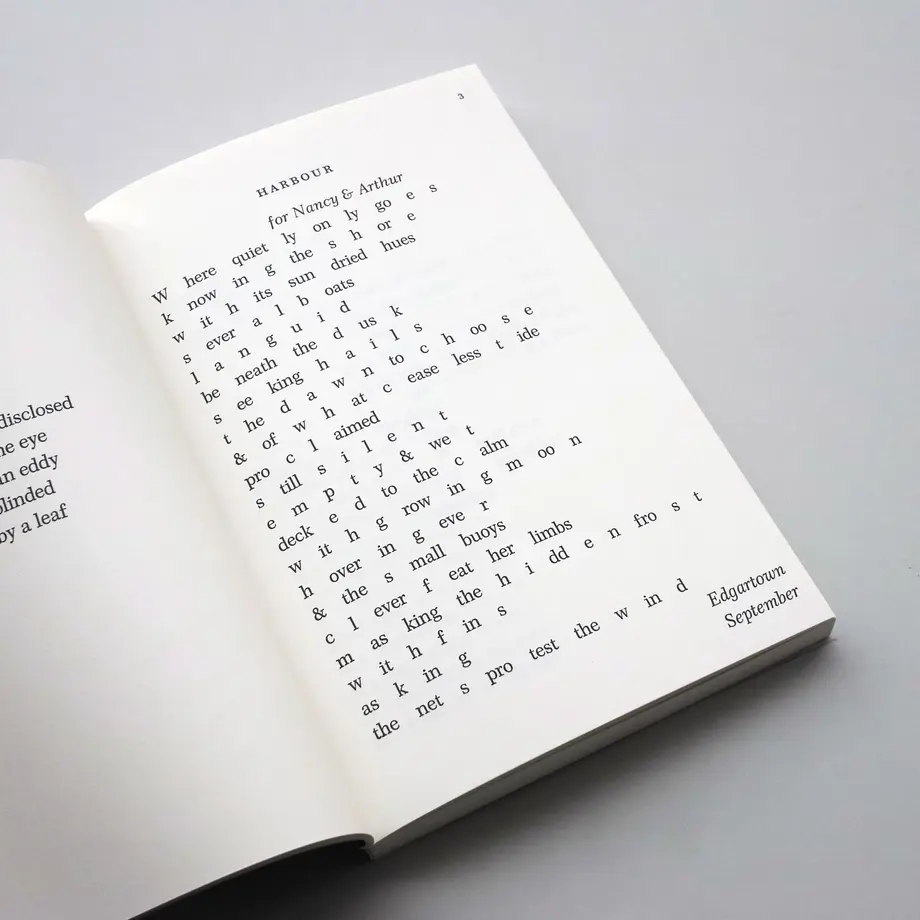 disclosed
eye
an eddy
blinded
by a leaf
3
HARBOUR
for Nancy & Arthur
W here quiet ly on ly go e s
k now in g the s h or e
w it h its sun dried hues
s ever a l b oats
l a n g u i d
be neath the d us k
s ee king h a i l s
t he d a w n to c h oo s e
& of w h at c ease less t ide
pro c l aimed
s till s i l e n t
e m p t y & we t
deck e d to the c alm
w it h g row in g m oo n
h over in g eve r
& the s mall buoys
c l ever f eat her limbs
m as king the h i dd e n fro s t
w it h f in s
as k in g
the net s pro test the w in d
Edgartown
September